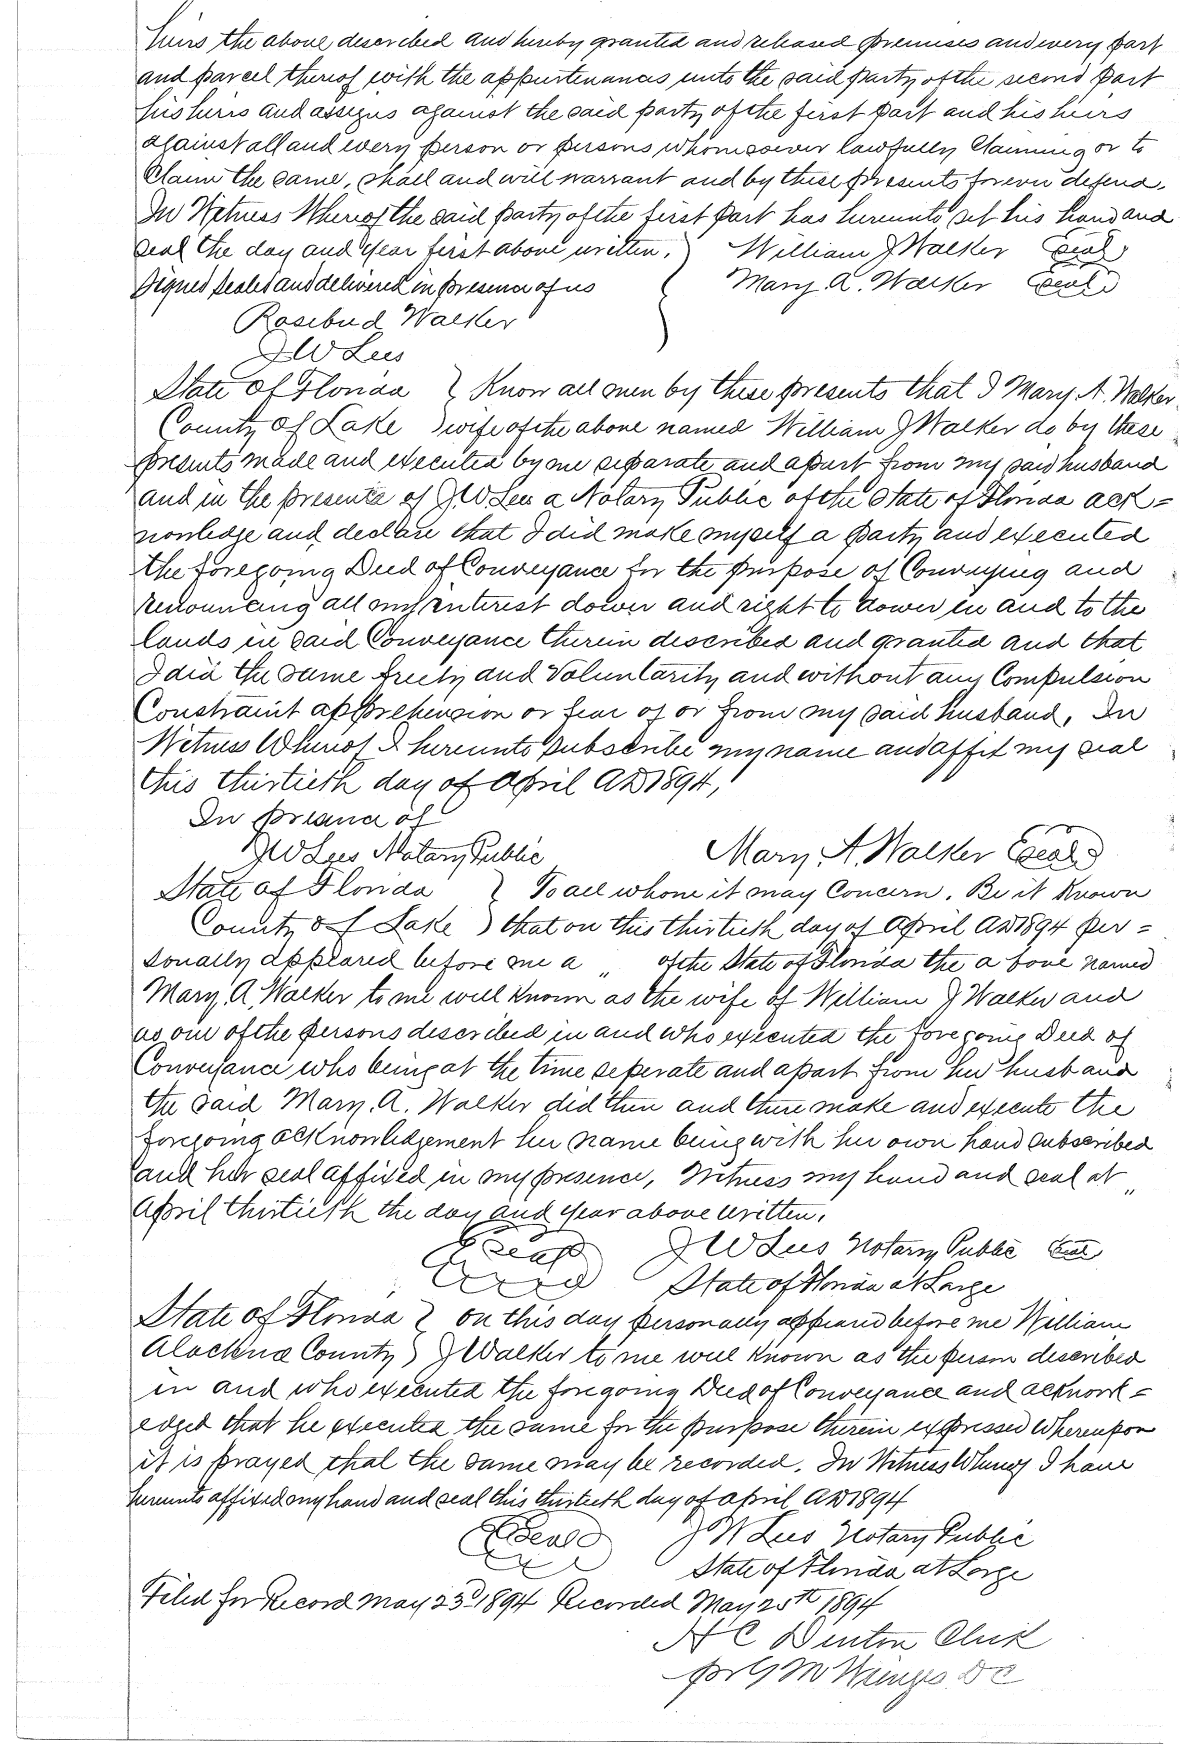 heirs the above described and hereby granted and released premises and every part
and parcel thereof with the appurtenances unto the said party of the second part
his heirs and assigns against the said party of the first part and his heirs
against all and every person or persons whomsoever lawfully claiming or to
Claim the same, shall and will warrant and by these presents forever defend.
In Witness Whereof the said party of the first part has hereunto set his hand and
seal the day and year first above written. } William J Walker (Seal)
Signed sealed and delivered in presence of us { Mary A. Walker (Seal)
Rosebud Walker
J W Lees
State of Florida } Know all men by these presents that I Mary A. Walker
County of Lake ) wife of the above named William J Walker do by these
presents made and executed by me separate and apart from my said husband
and in the presence of J.W. Lees a Notary Public of the State of Florida ack=
nowledge and declare that I did make myself a party and executed
the foregoing Deed of Conveyance for the purpose of Conveying and
renouncing all my interest dower and right to dower in and to the
lands in said Conveyance therein described and granted and that
I did the same freely and Voluntarily and without any Compulsion
Constraint apprehension or fear of or from my said husband, In
Witness Whereof I hereunto subscribe my name and affix my seal
this thirtieth day of April AD 1894,
In presence of
J W Lees Notary Public Mary A. Walker (Seal)
State of Florida } To all whome it may Concern. Be it Known
County of Lake ) that on this thirtieth day of April AD 1894 per=
sonally appeared before me a " of the State of Florida the above named
Mary A. Walker to me well known as the wife of William J Walker and
as one of the persons described in and who executed the foregoing Deed of
Conveyance who being at the time seperate and apart from her husband
the said Mary A. Walker did then and there make and execute the
foregoing acknowledgement her name being with her own hand subscribed
and her seal affixed in my presence, Witness my hand and seal at "
April thirtieth the day and year above written.
(Seal) J W Lees Notary Public (Seal)
State of Florida at Large
State of Florida } On this day personally appeard before me William
Alachua County ) J Walker to me well known as the person described
in and who executed the foregoing Deed of Conveyance and acknowl=
edged that he executed the same for the purpose therein expressed Whereupon
it is prayed that the same may be recorded. In Witness Whereof I have
hereunto affixed my hand and seal this thirtieth day of April AD 1894
(Seal) J W Lees Notary Public
State of Florida at Large
Filed for Record May 23d 1894 Recorded May 25th 1894
H C Denton Clerk
pr G M D C